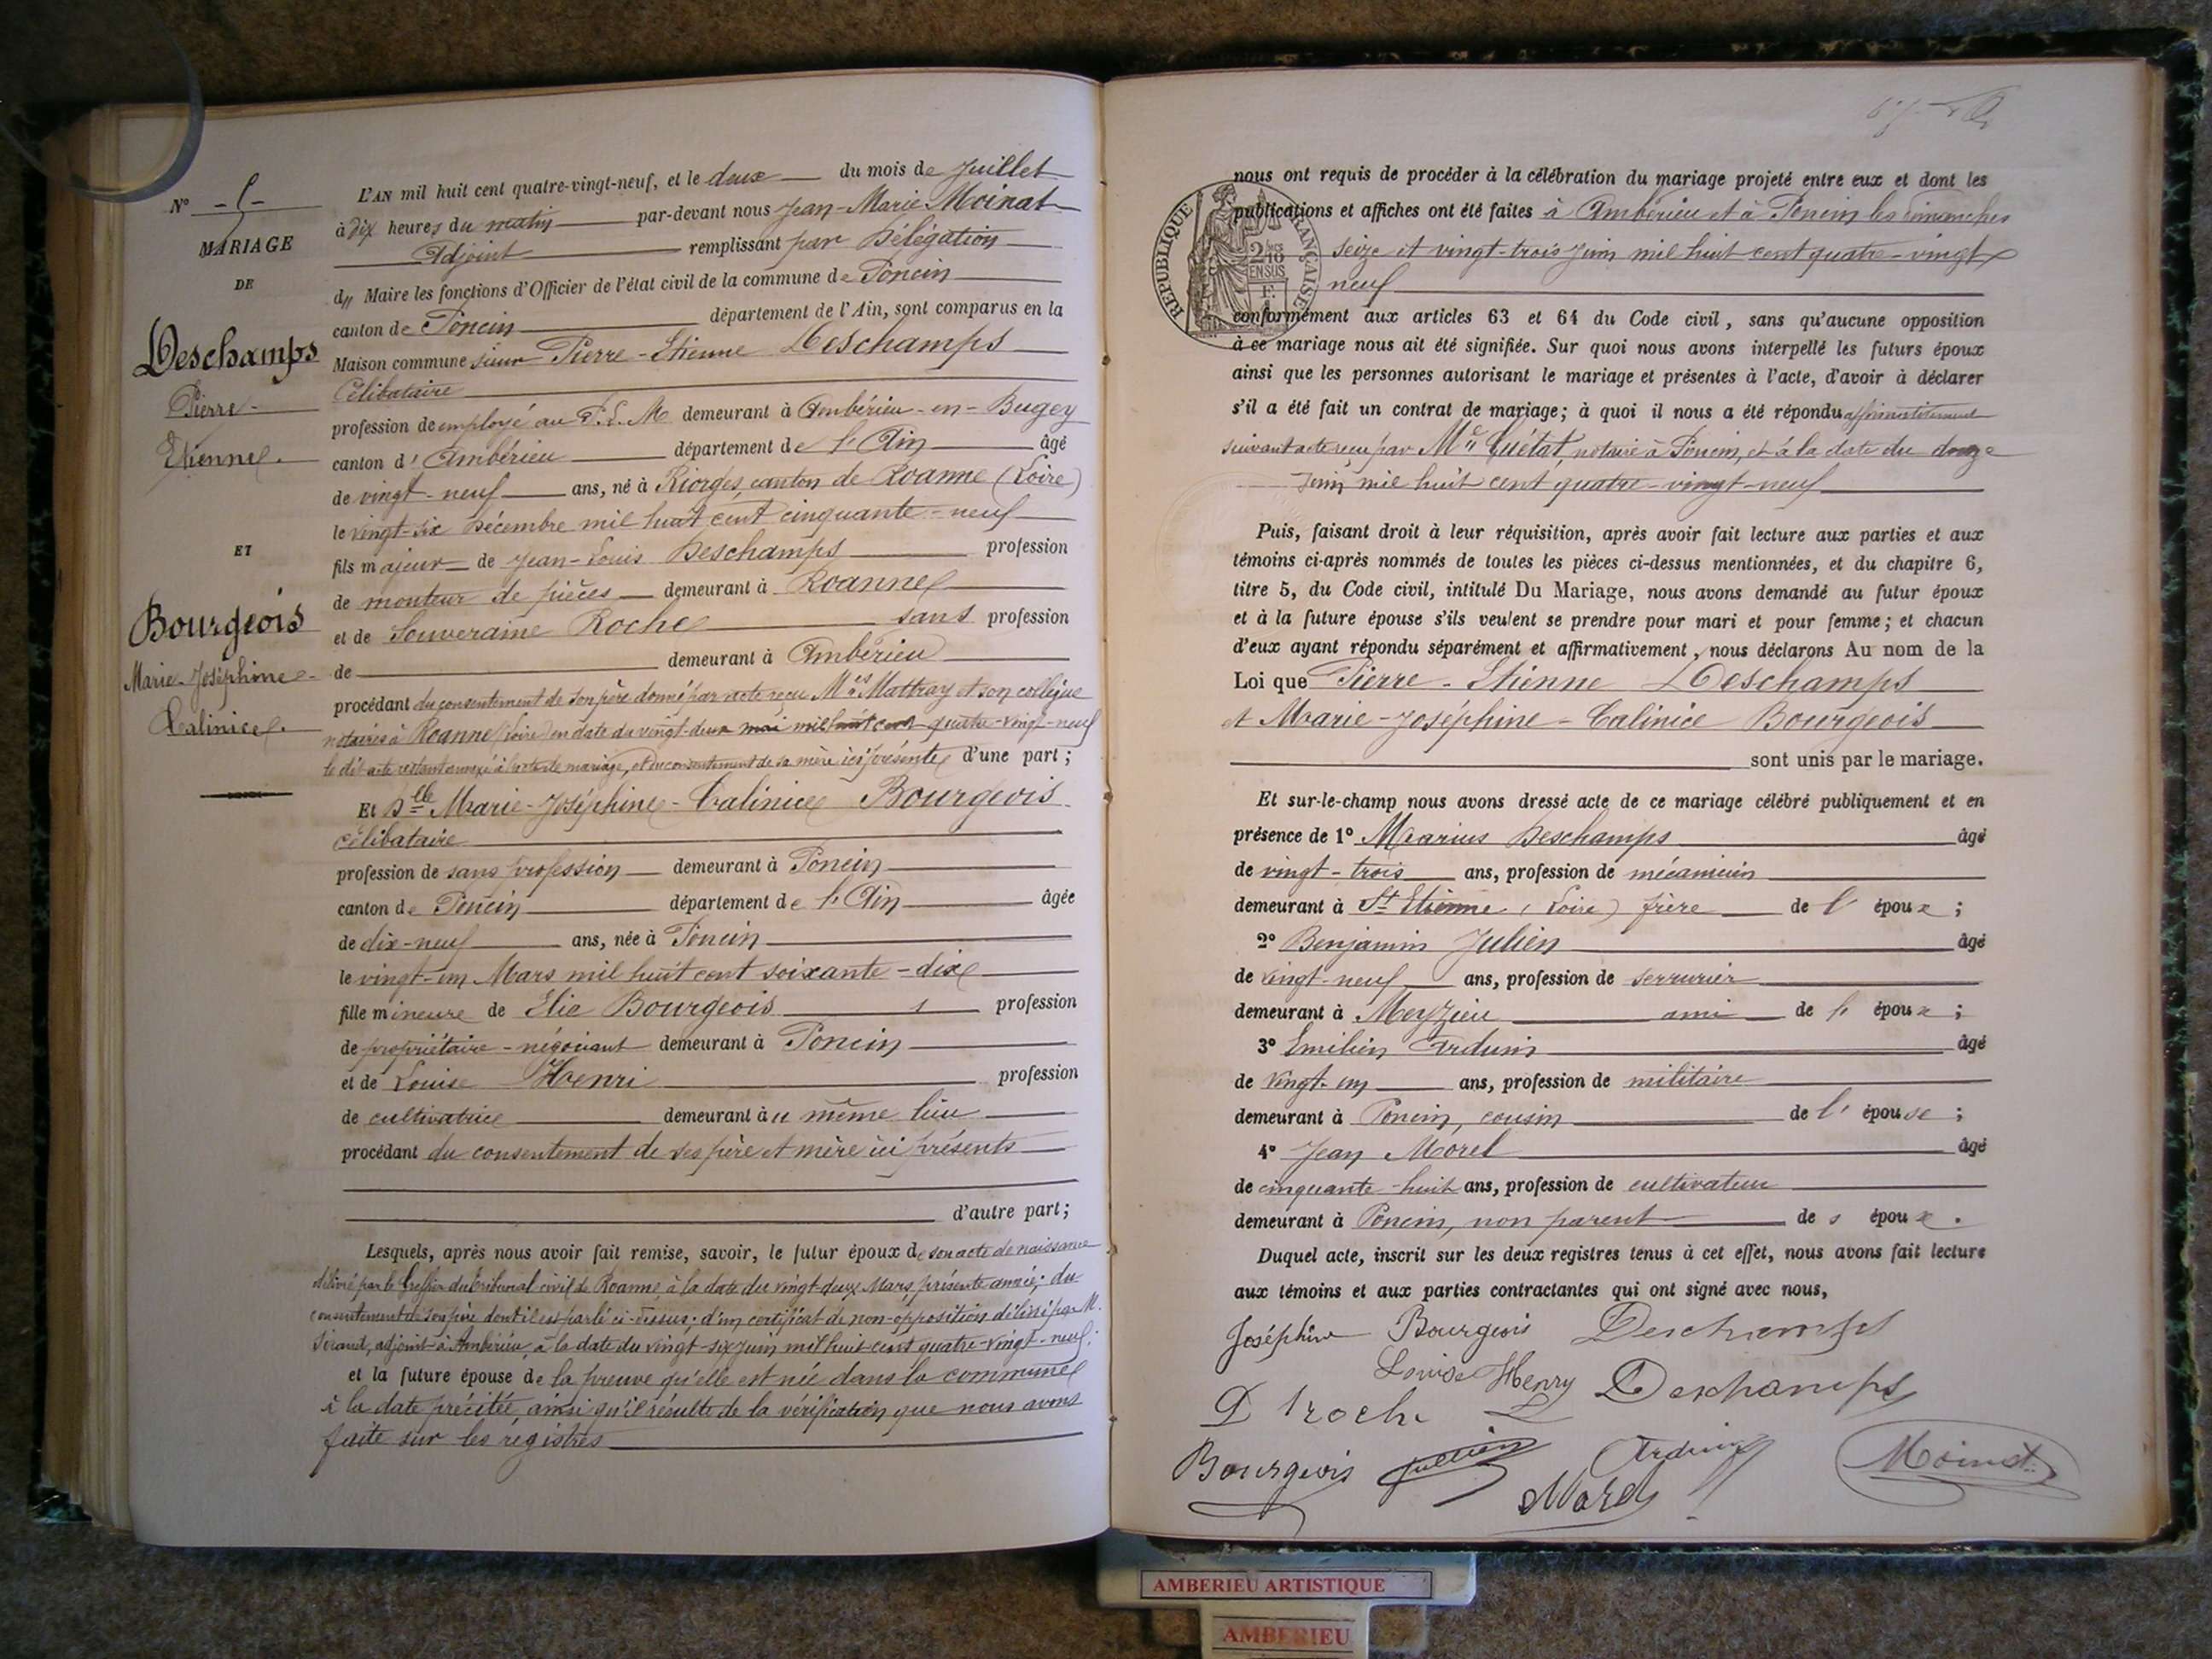 N° - 5 -
MARIAGE
DE
Deschamps
Pierre-
Etienne.
ET
Bourgeois
Marie-Joséphine-
Calinice.
L'AN mil huit cent quatre-vingt-neuf, et le deux du mois de Juillet
à dix heures du matin par-devant nous Jean-Marie Moinat
Adjoint remplissant par Délégation
du Maire les fonctions d'Officier de l'état civil de la commune de Poncin
canton de Poncin département de l'Ain, sont comparus en la
Maison commune sieur Pierre-Etienne Deschamps
Célibataire
profession de employé au P.L.M demeurant à Ambérieu-en-Bugey
canton d'Ambérieu département de l'Ain âgé
de vingt-neuf ans, né à Riorges, canton de Roanne (Loire)
le vingt-six Décembre mil huit cent cinquante-neuf
fils majeur de Jean-Louis Deschamps profession
de monteur de pièces demeurant à Roanne
et de Souveraine Roche sans profession
de demeurant à Ambérieu
procédant du consentement de son père donné par acte reçu Mes Mattray et son collègue
notaires à Roanne (Loire) en date du vingt-deux mai mil huit cent quatre-vingt-neuf
le dit acte restant annexé à l'acte de mariage, et du consentement de sa mère ici présente d'une part;
Et Delle Marie-Joséphine-Calinice Bourgeois
célibataire
profession de sans profession demeurant à Poncin
canton de Poncin département de l'Ain âgée
de dix-neuf ans, née à Poncin
le vingt-un Mars mil huit cent soixante-dix
fille mineure de Elie Bourgeois profession
de propriétaire-négociant demeurant à Poncin
et de Louise Henri profession
de cultivatrice demeurant au même lieu
procédant du consentement de ses père et mère ici présents
d'autre part;
Lesquels, après nous avoir fait remise, savoir, le futur époux de son acte de naissance
délivré par le Greffier du tribunal civil de Roanne, à la date du vingt-deux Mars, présente année; du
consentement de son père dont il est parlé ci-dessus; d'un certificat de non-opposition délivré par M.
adjoint à Ambérieu, à la date du vingt-six juin mil huit cent quatre-vingt-neuf;
et la future épouse de la preuve qu'elle est née dans la commune
à la date précitée, ainsi qu'il résulte de la vérification que nous avons
faite sur les registres
nous ont requis de procéder à la célébration du mariage projeté entre eux et dont les
publications et affiches ont été faites à Ambérieu et à Poncin les dimanches
seize et vingt-trois Juin mil huit cent quatre-vingt
neuf
RÉPUBLIQUE FRANÇAISE
conformément aux articles 63 et 64 du Code civil, sans qu'aucune opposition
à ce mariage nous ait été signifiée. Sur quoi nous avons interpellé les futurs époux
ainsi que les personnes autorisant le mariage et présentes à l'acte, d'avoir à déclarer
s'il a été fait un contrat de mariage; à quoi il nous a été répondu affirmativement
suivant acte reçu par Me Guétat, notaire à Poncin, et à la date du douze
Juin mil huit cent quatre-vingt-neuf
Puis, faisant droit à leur réquisition, après avoir fait lecture aux parties et aux
témoins ci-après nommés de toutes les pièces ci-dessus mentionnées, et du chapitre 6,
titre 5, du Code civil, intitulé Du Mariage, nous avons demandé au futur époux
et à la future épouse s'ils veulent se prendre pour mari et pour femme; et chacun
d'eux ayant répondu séparément et affirmativement, nous déclarons Au nom de la
Loi que Pierre-Etienne Deschamps
et Marie-Joséphine-Calinice Bourgeois
sont unis par le mariage.
Et sur-le-champ nous avons dressé acte de ce mariage célébré publiquement et en
présence de 1° Marius Deschamps âgé
de vingt-trois ans, profession de mécanicien
demeurant à St Etienne (Loire) frère de l'époux;
2° Benjamin Julien âgé
de vingt-neuf ans, profession de serrurier
demeurant à Meyzieu ami de l'époux;
3° Emilien Arduin âgé
de vingt-un ans, profession de militaire
demeurant à Poncin, cousin de l'épouse;
4° Jean Morel âgé
de cinquante-huit ans, profession de cultivateur
demeurant à Poncin, non parent des époux.
Duquel acte, inscrit sur les deux registres tenus à cet effet, nous avons fait lecture
aux témoins et aux parties contractantes qui ont signé avec nous,
Joséphine Bourgeois Deschamps
Louise Henry Deschamps
Roche
Bourgeois Jullien Arduin Moinat
Morel
AMBERIEU ARTISTIQUE
AMBERIEU